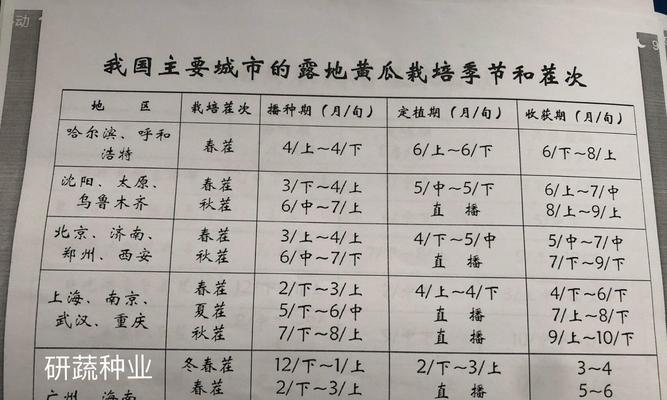 动
我国主要城市的露地黄瓜栽培季节和茬次
地 区 栽培茬次 播种期（月/旬） 定植期（月/旬） 收获期（月/旬）
哈尔滨、呼和浩特 春茬 4/上～4/下 6/上～6/下 6/下～8/上
沈阳、太原、 春茬 3/下～4/上 5/中～5/下 6/上～7/中
乌鲁木齐 秋茬 6/中～7/上 直 播 8/上～9/上
北京、济南、 春茬 3/上～4/上 4/下～5/中 5/中～7/中
郑州、西安 秋茬 6/中～7/下 直 播 7/下～9/下
上海、南京、 春茬 2/下～3/上 4/上～4/下 4/下～6/下
武汉、重庆 夏茬 5/下～6/中 直 播 7/上～8/下
秋茬 7/下～8/上 直 播 9/上～10/下
冬春茬 12/下～1/上 2/下～3/上 3～4
广州、海南 春茬 2/中～3/上 直 播 5～6
研蔬种业